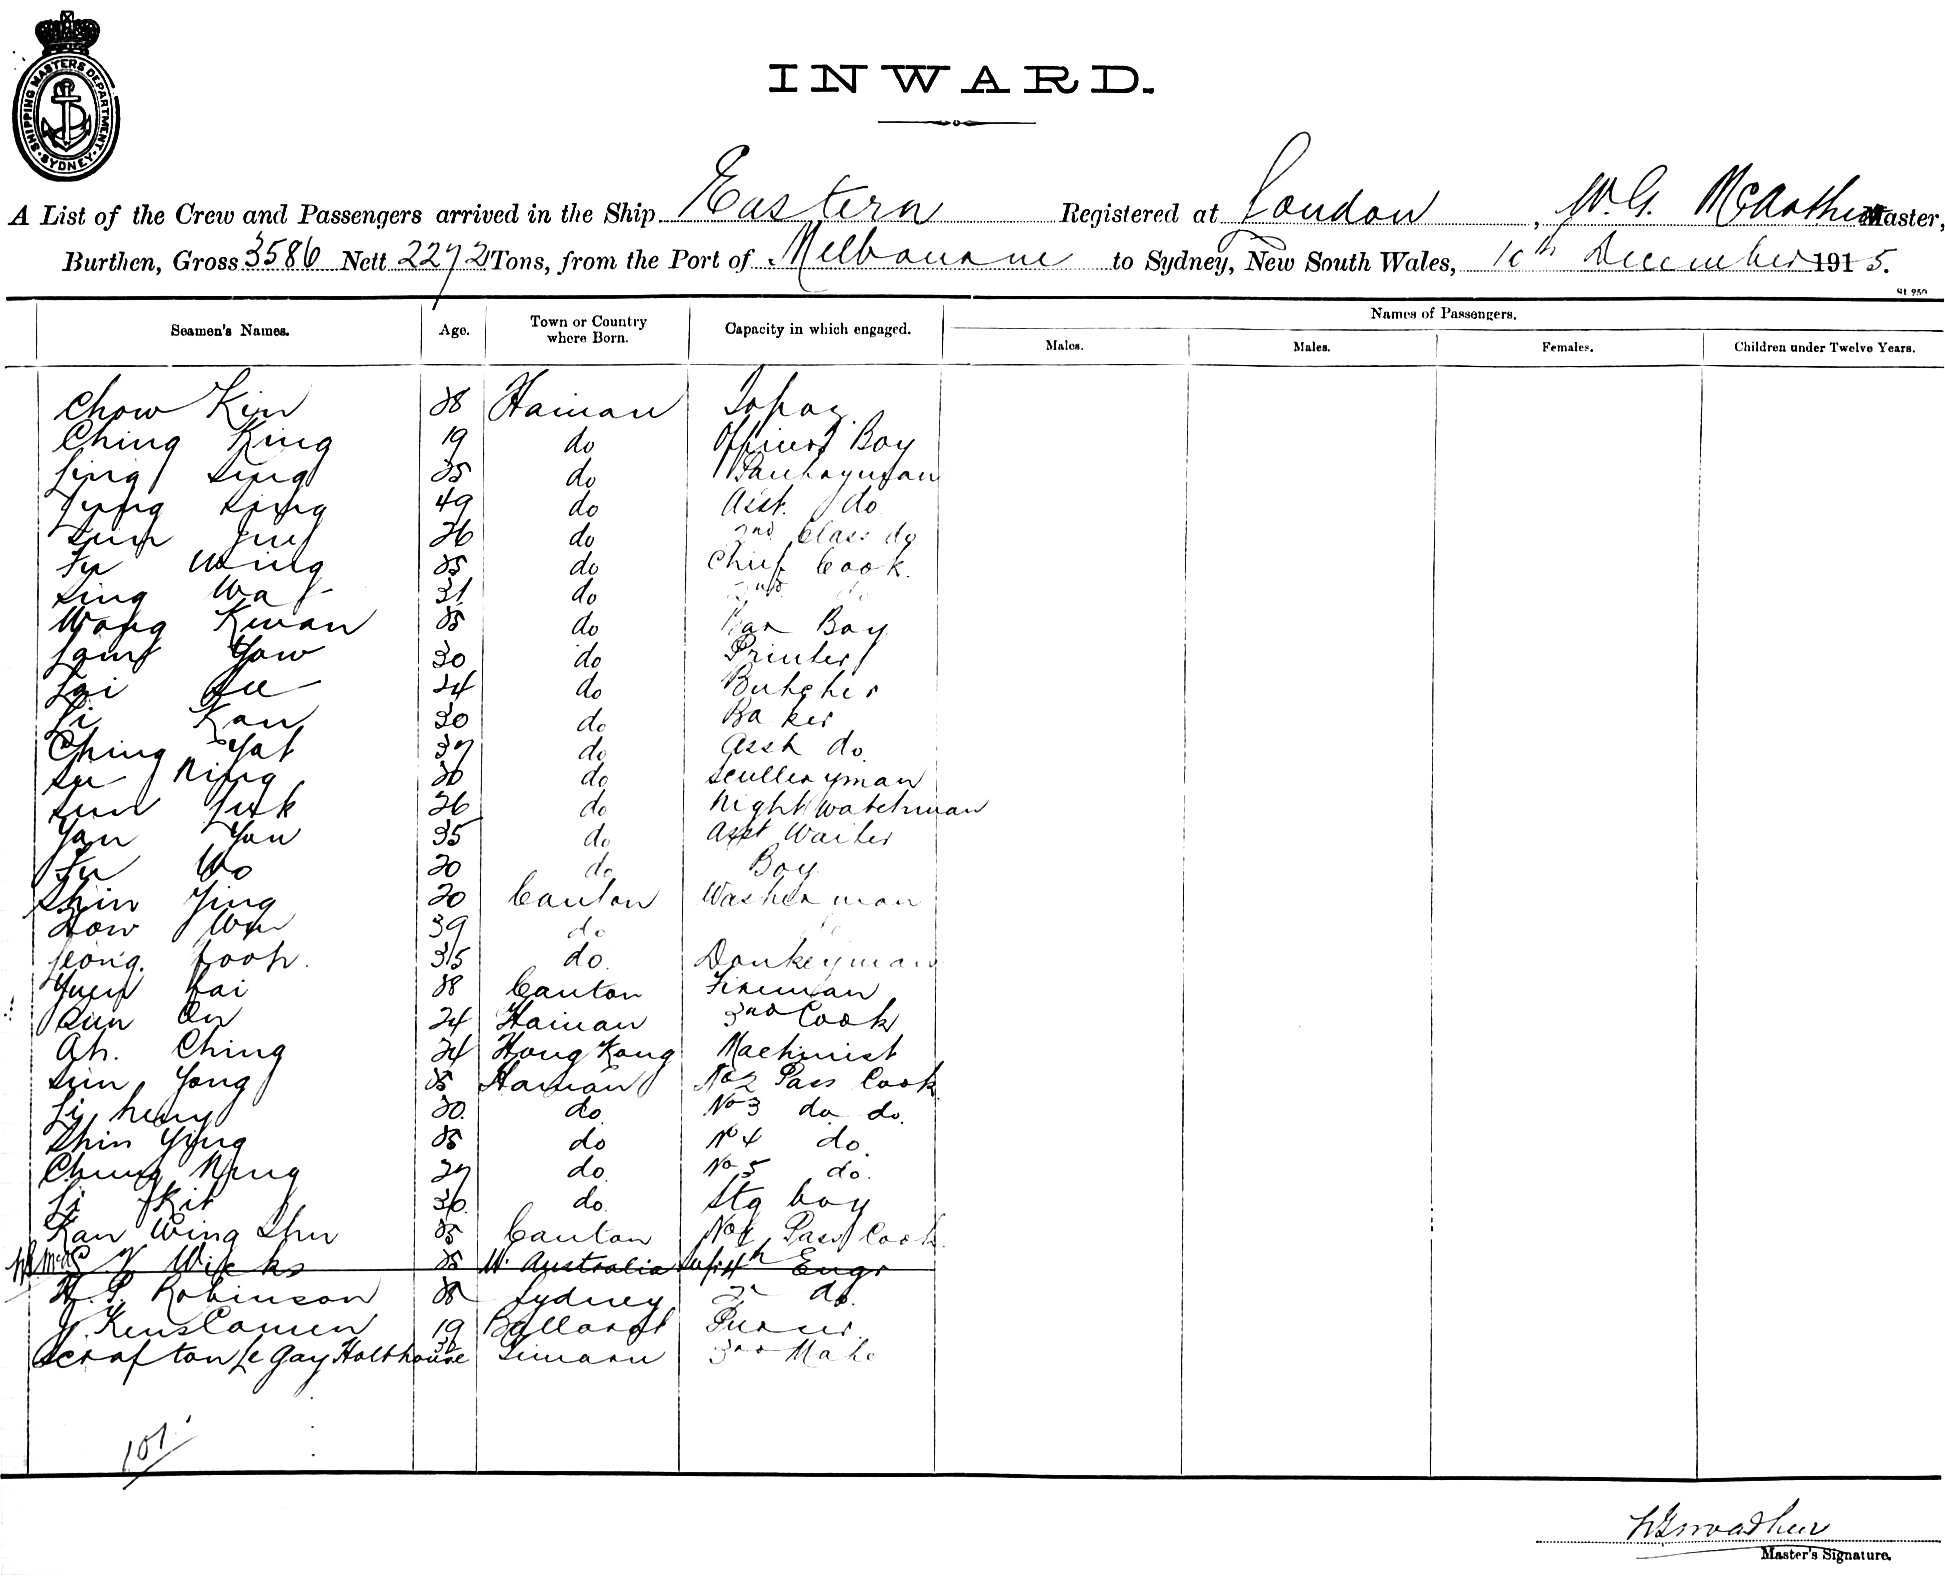 SHIPPING MASTERS DEPARTMENT. SYDNEY.
INWARD.
A List of the Crew and Passengers arrived in the Ship Eastern Registered at London, W. G. McArthur Master,
Burthen, Gross 3586 Nett 2272 Tons, from the Port of Melbourne to Sydney, New South Wales, 10th December 1915.
Names of Passengers.
Seamen's Names. Age. Town or Country where Born. Capacity in which engaged. Males. Males. Females. Children under Twelve Years.
Chow Kin 38 Hainan Topaz
Ching King 19 do Officers Boy
Ling Sing 35 do Pantryman
Sing 49 do Asst. do
26 do 2nd Class do
Fu Wing 35 do Chief Cook.
Sing Wa 31 do 2nd do
Wong Kwan 35 do Bar Boy
Yow 30 do Printer
Lai 24 do Butcher
Li Kan 30 do Baker
Ching Yat 37 do Asst do.
Su Ning 30 do Sculleryman
26 do Night Watchman
Yan Yan 35 do Asst Waiter
Fu Wo 20 do Boy
Shin Jing 20 Canton Washerman
39 do
Leong Fook. 35 do. Donkeyman
Yuen Kai 38 Canton Fireman
Sun On 24 Hainan 3rd Cook
Ah. Ching 24 Hong Kong Machinist
Sun Yong 35 Hainan No 2 Pass Cook
Li 30. do. No 3 do do.
Shin Ying 35 do No 4 do.
Chung Ning 27 do. No 5 do.
Li Kit 30. do. Stg boy
Kan Wing Shu 35 Canton No 1 Pass Cook.
W. G. McA J Wicks 35 W. Australia 4th Engr
H. P. Robinson 38 Sydney 2 do.
19 Ballarat Purser.
Scrafton Le Gay Holthouse 36 Timaru 3rd Mate
101
W G McArthur
Master's Signature.